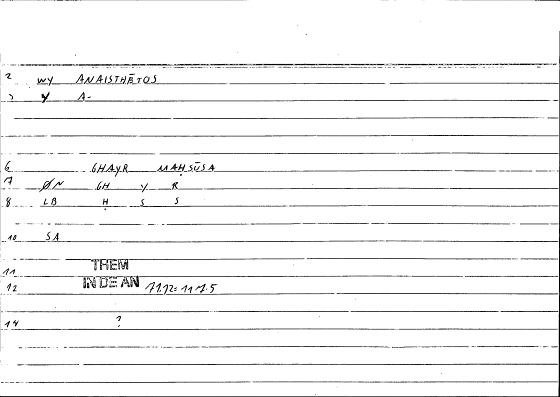 2 wy ANAISTHĒTOS
3 y A-
6 GHAYR MAḤSŪSA
7 ØN GH Y R
8 LB Ḥ S S
10 SA
11 THEM
12 IN DE AN 71.12-11 7.5
14 ?